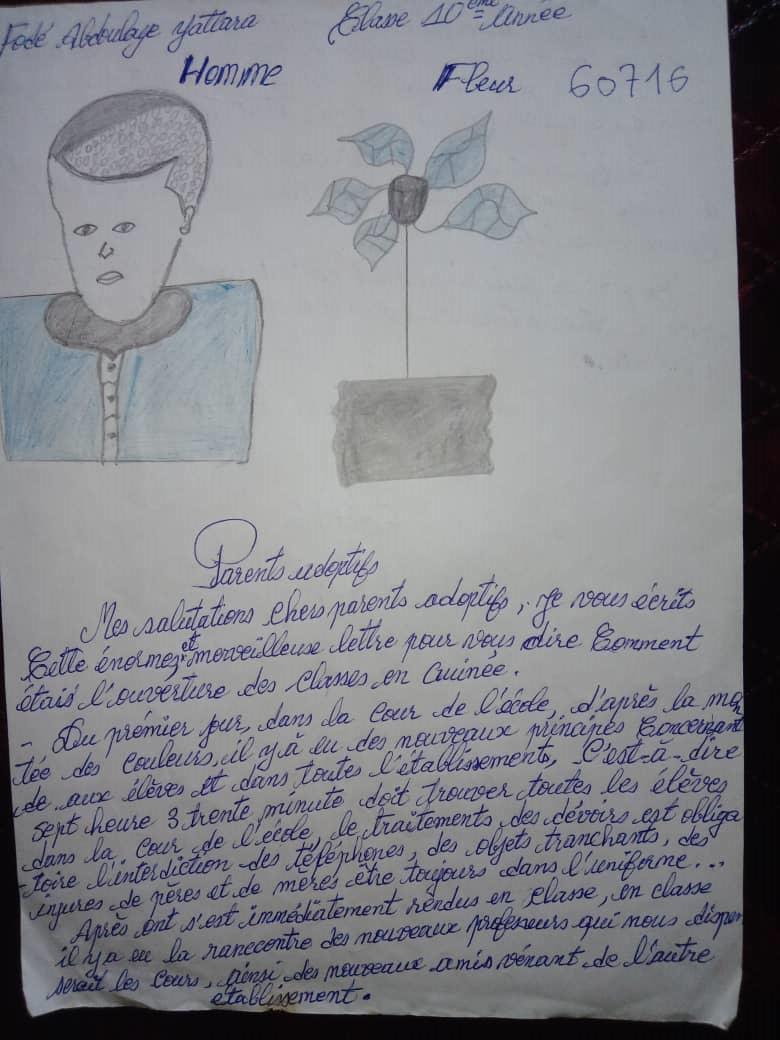 Fodé Abdoulaye Yattara Classe 10ème Année
Homme Fleur 60716
Parents adoptifs
Mes salutations chers parents adoptifs, je vous écrits
Cette énormes et merveilleuse lettre pour vous dire Comment
étais l'ouverture des classes en Guinée.
- Du prémier jour, dans la cour de l'école, d'après la mon
tée des couleurs, il y à eu des nouveaux principes Concernant
de aux élèves et dans toutes l'établissements, C'est-à-dire
sept heure 3 trente minute doit trouver toutes les élèves
dans la cour de l'école, le traitements des dévoirs est obliga
-toire l'interdiction des téléphones, des objets tranchants, des
injures de pères et de mères être toujours dans l'uniforme...
Après ont s'est immédiatement rendus en classe, en classe
il y a eu la ranccontre des nouveaux professeurs qui nous dispen
serait les cours, ainsi des nouveaux amis vénant de l'autre
établissement.